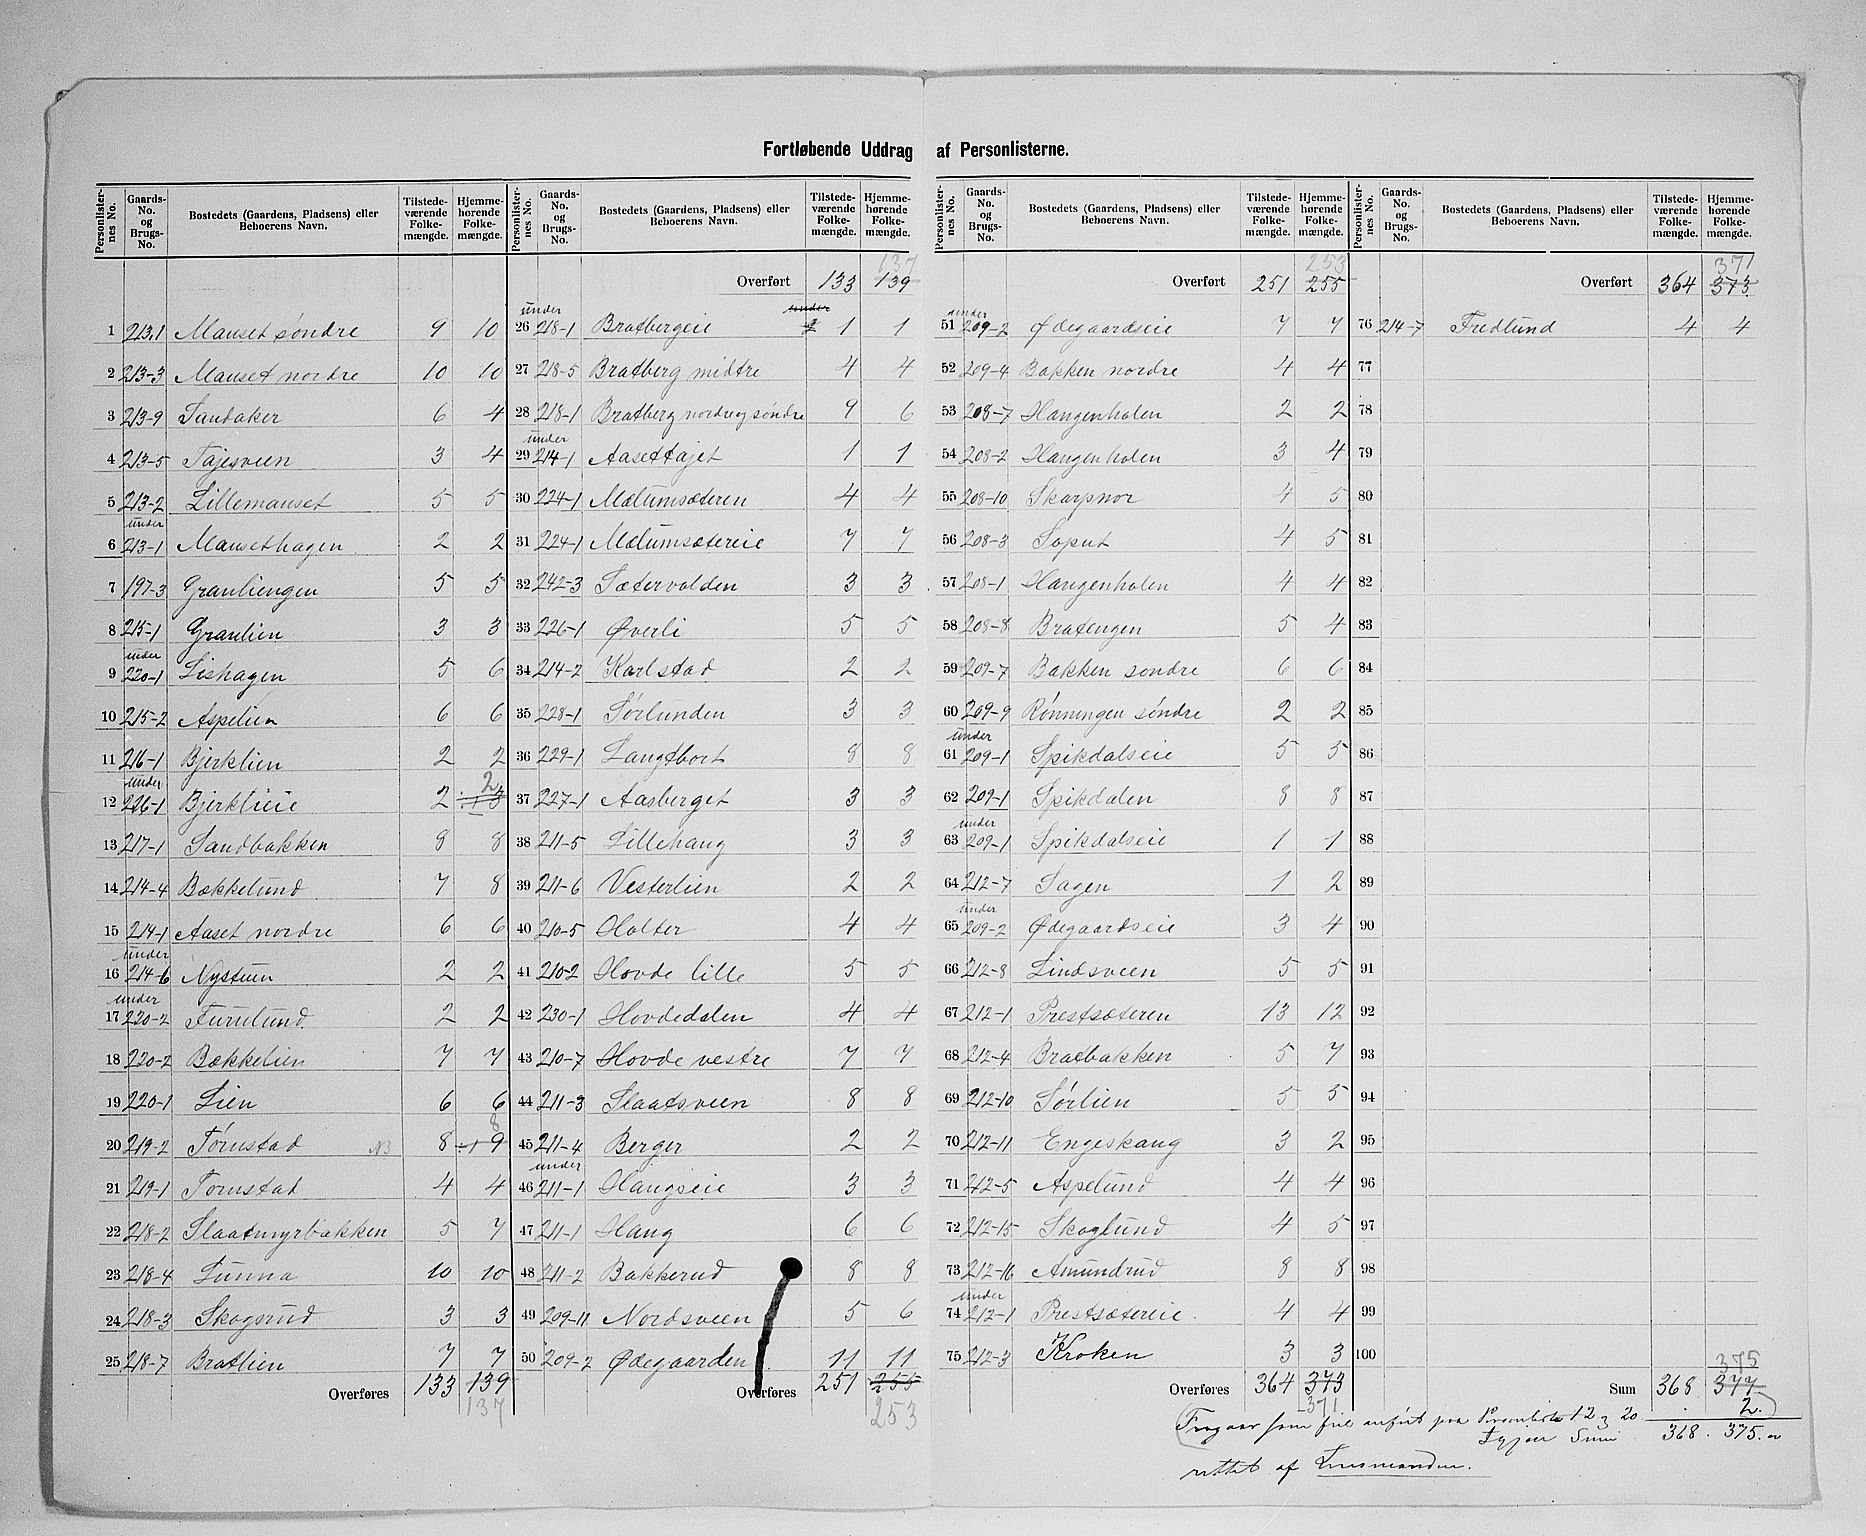 Fortløbende Uddrag af Personlisterne.
Personlister-nes No. Gaards-No. og Brugs-No. Bostedets (Gaardens, Pladsens) eller Beboerens Navn. Tilstede-værende Folke-mængde. Hjemme-hørende Folke-mængde.
1 213.1 Manset søndre 9 10
2 213-3 Manset nordre 10 10
3 213-9 Sandaker 6 4
4 213-5 Tajesveen 3 4
5 213-2 Lillemanset 5 5
6 under 213-1 Mansethagen 2 2
7 197-3 Granliengen 5 5
8 215-1 Granlien 3 3
9 under 220-1 Lishagen 5 6
10 215-2 Aspelien 6 6
11 216-1 Bjerklien 2 2
12 under 216-1 Bjerklieie 2 3 2
13 217-1 Sandbakken 8 8
14 214-4 Bækkelund 7 8
15 214-1 Aaset nordre 6 6
16 under 214-6 Nystuen 2 2
17 under 220-2 Furulund 2 2
18 220-2 Bækkelien 7 7
19 220-1 Lien 6 6
20 219-2 Tørnstad 8 9 8
21 219-1 Tørnstad 4 4
22 218-2 Slaatmyrbakken 5 7
23 218-4 Lunna 10 10
24 218-3 Skogsrud 3 3
25 218-7 Bratlien 7 7
Overføres 133 139
137
Personlister-nes No. Gaards-No. og Brugs-No. Bostedets (Gaardens, Pladsens) eller Beboerens Navn. Tilstede-værende Folke-mængde. Hjemme-hørende Folke-mængde.
137
Overført 133 139
26 under 218-1 Bratbergeie 1 1
27 218-5 Bratberg midtre 4 4
28 218-1 Bratberg nordre og søndre 9 6
29 under 214-1 Aasettajet 1 1
30 224-1 Mælumsæteren 4 4
31 224-1 Mælumsætereie 7 7
32 242-3 Sætervolden 3 3
33 226-1 Øverli 5 5
34 214-2 Karlstad 2 2
35 228-1 Sørlunden 3 3
36 229-1 Langtbort 8 8
37 227-1 Aasberget 3 3
38 211-5 Lillehaug 3 3
39 211-6 Vesterlien 2 2
40 210-5 Holter 4 4
41 210-2 Hovde lille 5 5
42 230-1 Hovdedalen 4 4
43 210-7 Hovde vestre 7 7
44 211-3 Slaatsveen 8 8
45 211-4 Berger 2 2
46 under 211-1 Haugseie 3 3
47 211-1 Haug 6 6
48 211-2 Bakkerud 8 8
49 209-11 Nordsveen 5 6
50 209-2 Ødegaarden 11 11
Overføres 251 255
253
Personlister-nes No. Gaards-No. og Brugs-No. Bostedets (Gaardens, Pladsens) eller Beboerens Navn. Tilstede-værende Folke-mængde. Hjemme-hørende Folke-mængde.
253
Overført 251 255
51 under 209-2 Ødegaardseie 7 7
52 209-4 Bakken nordre 4 4
53 208-7 Haugenholen 2 2
54 208-2 Haugenholen 3 4
55 208-10 Skarpnor 4 5
56 208-3 Soput 4 5
57 208-1 Haugenholen 4 4
58 208-8 Bratengen 5 4
59 209-7 Bakken søndre 6 6
60 209-9 Rønningen søndre 2 2
61 under 209-1 Spikdalseie 5 5
62 209-1 Spikdalen 8 8
63 under 209-1 Spikdalseie 1 1
64 212-7 Sagen 1 2
65 under 209-2 Ødegaardseie 3 4
66 212-8 Lindsveen 5 5
67 212-1 Prestsæteren 13 12
68 212-4 Bratbakken 5 7
69 212-10 Sørlien 5 5
70 212-11 Engeskaug 3 2
71 212-5 Aspelund 4 4
72 212-15 Skoglund 4 5
73 212-16 Amundrud 8 8
74 under 212-1 Prestsætereie 4 4
75 212-3 Kroken 3 3
Overføres 364 373
371
Personlister-nes No. Gaards-No. og Brugs-No. Bostedets (Gaardens, Pladsens) eller Beboerens Navn. Tilstede-værende Folke-mængde. Hjemme-hørende Folke-mængde.
371
Overført 364 373
76 214-7 Fredlund 4 4
77
78
79
80
81
82
83
84
85
86
87
88
89
90
91
92
93
94
95
96
97
98
99
100
375
Sum 368 377
2
som feil anført paa Personliste 12 og 20
368 375
rettet af Lensmanden.